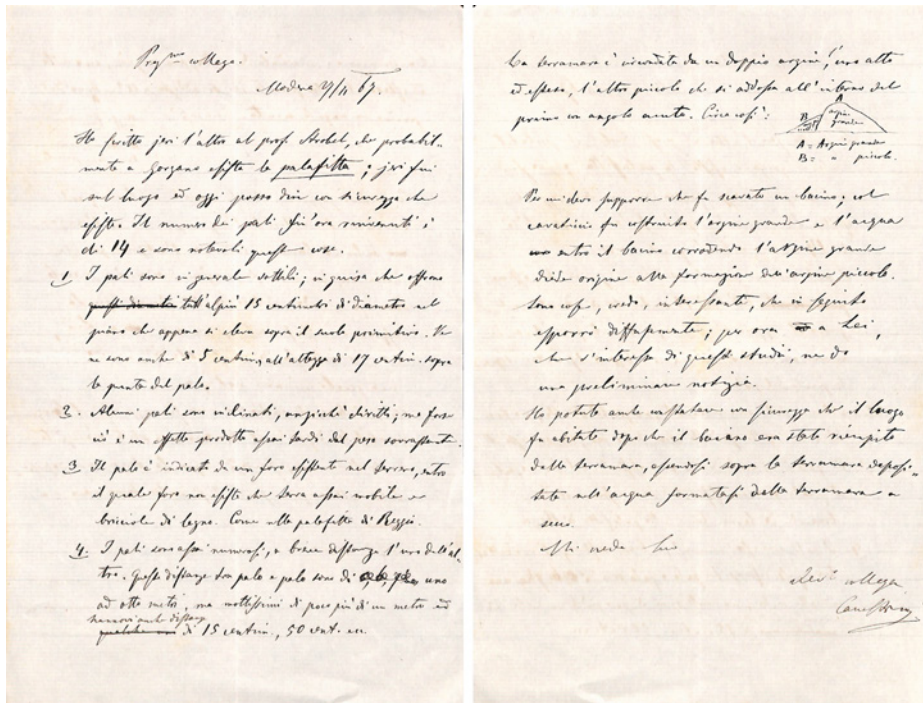 Preg^mo collega.
Modena 27/11 67.
Ho scritto jeri l'altro al prof. Strobel, che probabil-
mente a Gorzano esiste la palafitta; jeri fui
sul luogo ed oggi posso dire con sicurezza che
esiste. Il numero dei pali fin'ora rinvenuti è
di 14 e sono notevoli queste cose.
1. I pali sono in generale sottili; in guisa che offrono
tutt'al più 15 centimetri di diametro nel
piano che appena si eleva sopra il suolo primitivo. Ve
ne sono anche di 5 centim. all'altezza di 17 centim. sopra
la punta del palo.
2. Alcuni pali sono inclinati, anzichè diritti; ma forse
ciò è un effetto prodotto assai tardi dal peso sovrastante.
3. Il palo è indicato da un foro esistente nel terreno, entro
il quale foro non esiste che terra assai mobile e
briciole di legno. Come nella palafitta di Reggio.
4. I pali sono assai numerosi, a breve distanza l'uno dall'al-
tro. Queste distanze tra palo e palo sono di uno
ad otto metri, ma moltissimi di poco più di un metro ed
anche distanze
di 15 centim., 50 cent. ecc.
La terramara è circondata da un doppio argine, l'uno alto
ed esteso, l'altro piccolo che si addossa all'interno del
primo con angolo acuto. Circa così:
A
B argine
grande
A = Argine grande
B = " piccolo.
Per cui devo supporre che fu scavato un bacino; col
cavaticcio fu costruito l'argine grande e l'acqua
entro il bacino corrodendo l'argine grande
diede origine alla formazione dell'argine piccolo.
Sono cose, credo, interessante, che in seguito
esporrò diffusamente; per ora a Lei,
che s'interessa di questi studii, ne do
una preliminare notizia.
Ho potuto anche constatare con sicurezza che il luogo
fu abitato dopo che il bacino era stato riempito
dalla terramara, essendosi sopra la terramara deposi-
tata nell'acqua formatasi della terramara a
secco.
Mi creda Suo
collega
Canestrini